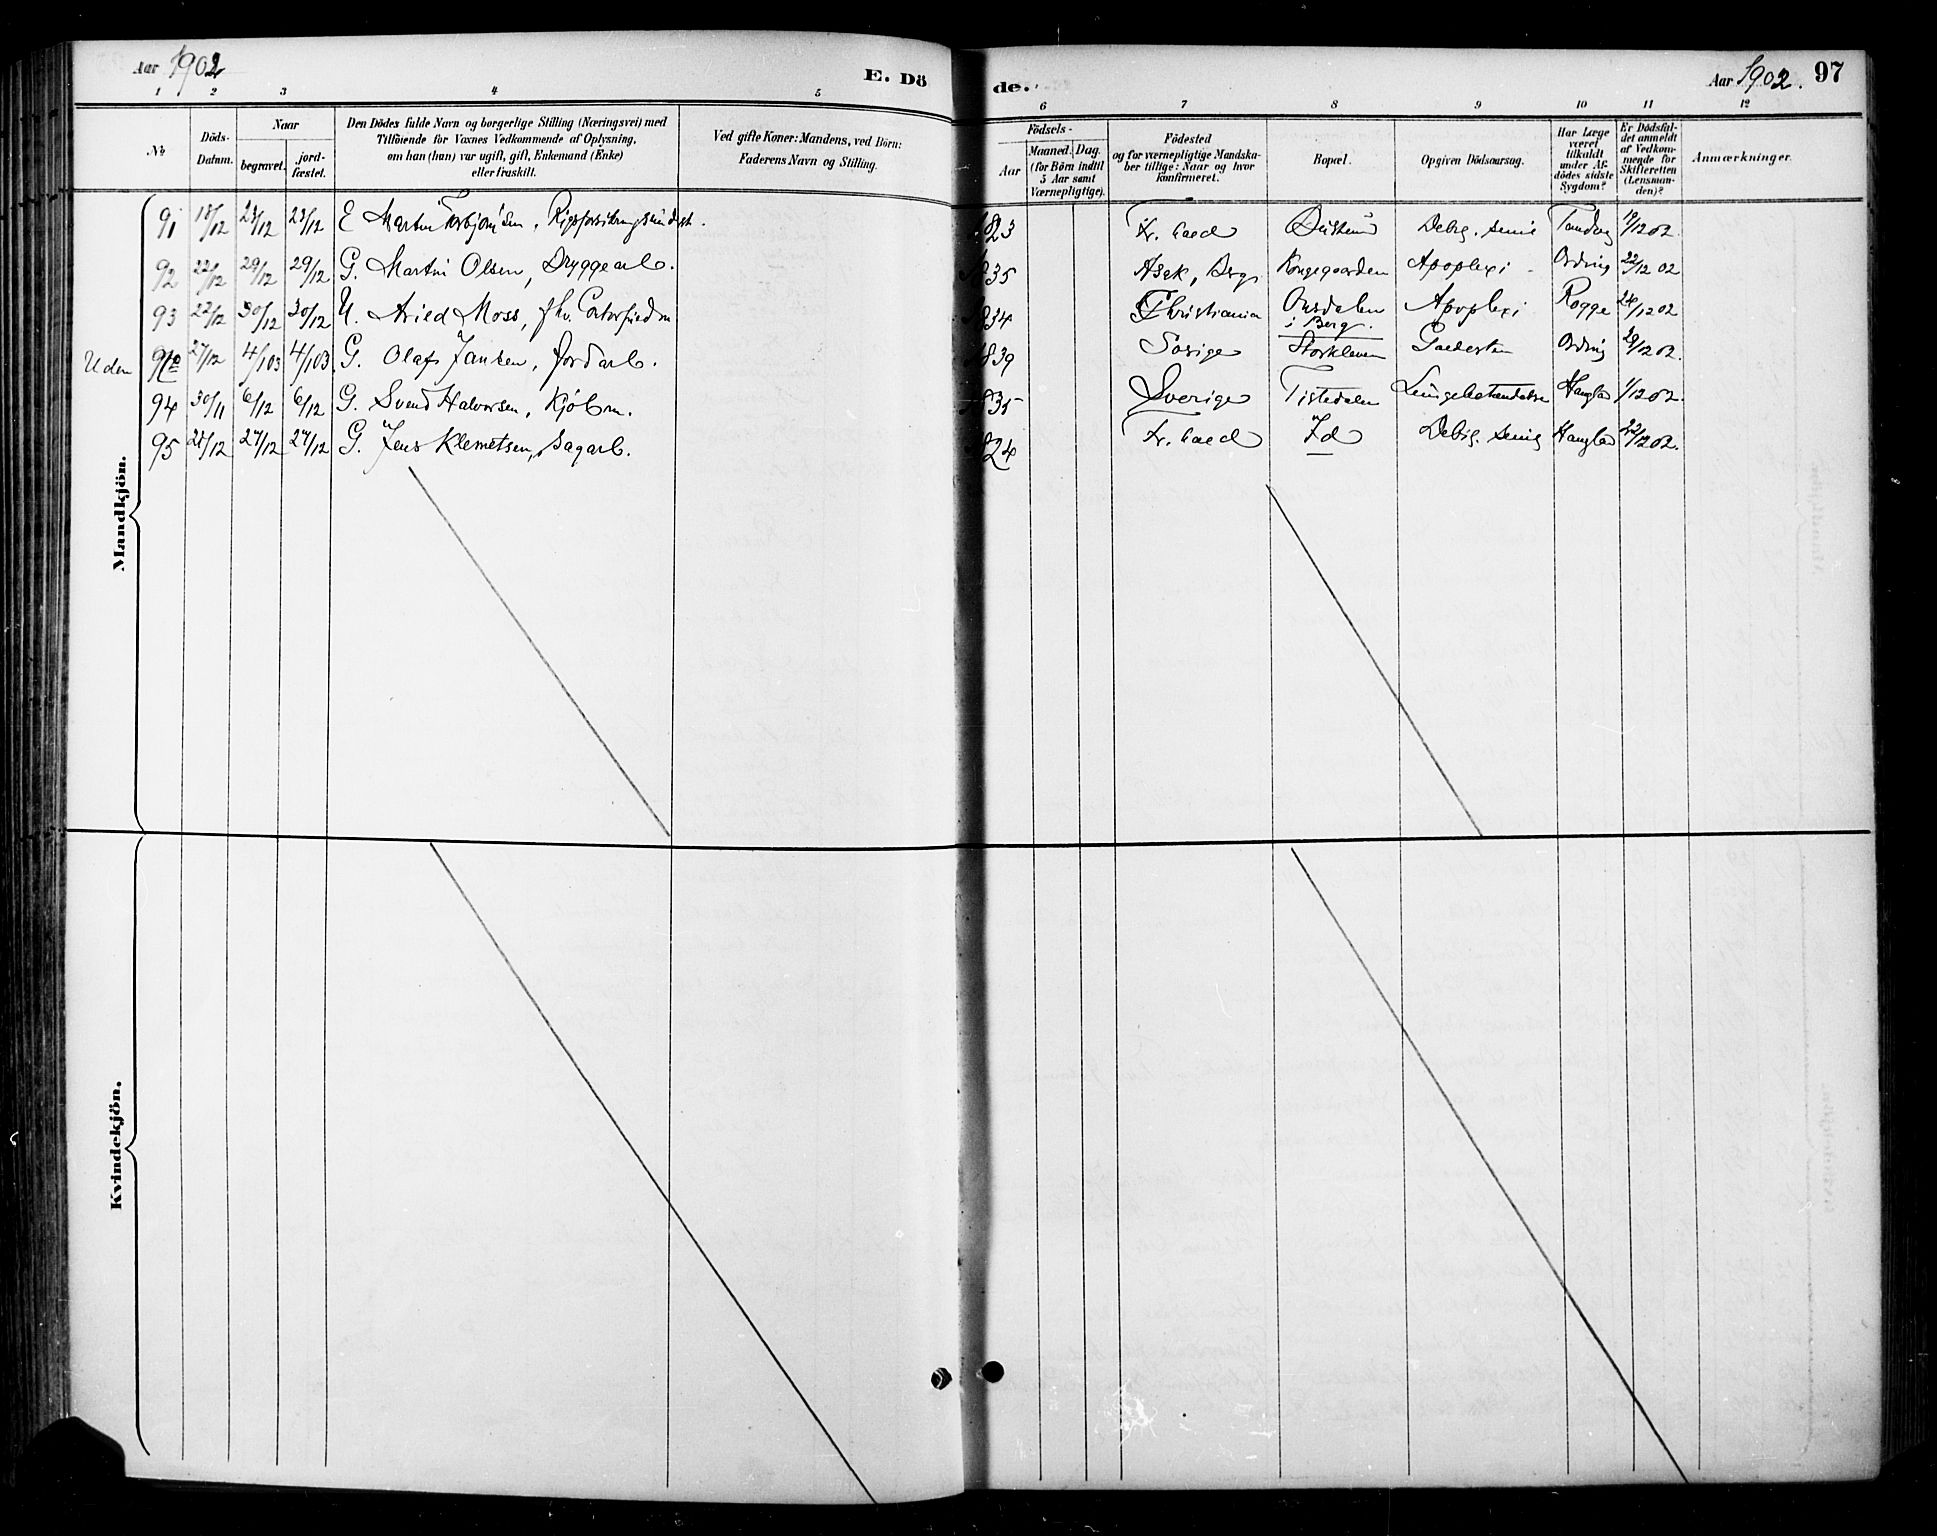 Aar 1902
E. Dö
de.
Aar 1902. 97
1 2 3 4 5 6 7 8 9 10 11 12
No
Döds-Datum.
Naar
begravet.
jordfæstet.
Den Dödes fulde Navn og borgerlige Stilling (Næringsvei) med
Tilföiende for Voxnes Vedkommende af Oplysning,
om han (hun) var ugift, gift, Enkemand (Enke)
eller fraskilt.
Ved gifte Koner: Mandens, ved Börn:
Faderens Navn og Stilling.
Födsels-
Aar
Maaned. Dag.
(for Börn indtil
5 Aar samt
Værnepligtige).
Födested
og for værnepligtige Mandska-
ber tillige: Naar og hvor
konfirmeret.
Bopæl.
Opgiven Dödsaarsag.
Har Læge
været
tilkaldt
under Af-
dödes sidste
Sygdom?
Er Dödsfal-
det anmeldt
af Vedkom-
mende for
Skifteretten
(Lensman-
den)?
Anmærkninger.
91 18/12 23/12 23/12 E Martin Torbjørnsen, 1823 Fr. hald Debig. senil Tandberg 19/12 02.
92 22/12 29/12 29/12 G. Martin Olsen, Bryggearb. 1835 Asak, Berg Kongegaarden Apoplexi Ording 22/12 02
93 22/12 30/12 30/12 U. Aried Moss, fhv. 1834 Christiania i Berg. Apoplexi Rogge 24/12 02
Uden No 27/12 4/1 03 4/1 03 G. Olaf Jansen, Jordarb. 1839 Sverige Storkleven Ording 29/12 02.
94 30/11 6/12 6/12 G. Svend Halvorsen, Kjøbm. 1835 Sverige Tistedalen Lungebetændelse Haugland 1/12 02.
95 21/12 27/12 27/12 G. Jens Klemetsen, Sagarb. 1824 Fr. hald Id Debig. senil Haugland 22/12 02.
Mandkjön.
Kvindekjön.